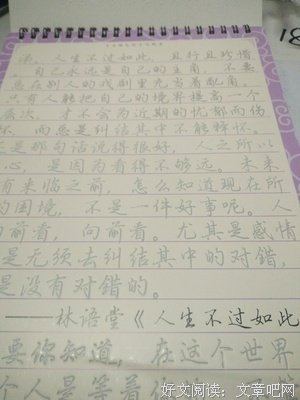 语，人生不过如此，且行且珍惜
。自己永远是自己的主角，不要
总在别人的戏剧里充当着配角。
只有人能把自己的境界提高一个
层次，才不会为近期的忧郁而伤
怀，而总是纠结其中不能释怀。
还是那句话说得很好，人之所以
心，是因为看得不够远。未来
有来临之前，怎么知道现在所
的困境，不是一件好事呢。人
向前看，向前看。尤其是感情
是无须去纠结其中的对错，
是没有对错的。
——林语堂《人生不过如此
要你知道，在这个世界
个人是等着
好文阅读：文章吧网